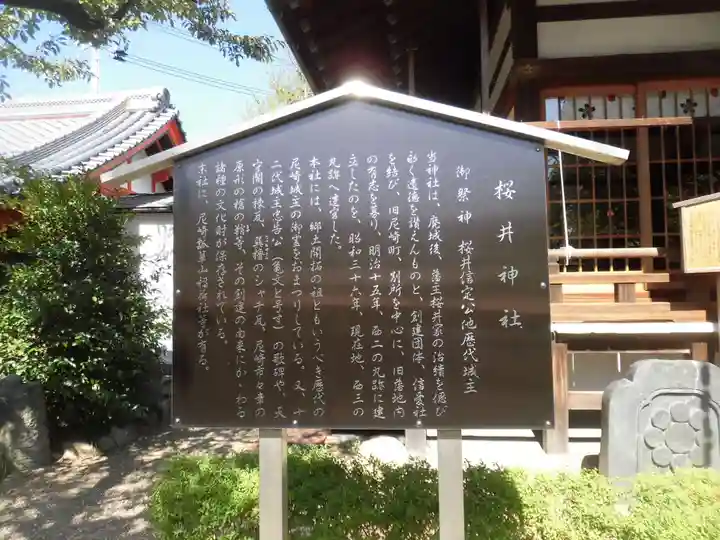 桜井神社
御祭神 桜井信定公他歴代城主
当神社は、廃城後、藩主桜井家の治績を偲び
永く遺徳を讃えんものと、創建団体、信愛社
を結び、旧尼崎町、別所を中心に、旧藩地内
の有志を募り、明治十五年、西二の丸跡に建
立したのを、昭和三十六年、現在地、西三の
丸跡へ遷宮した。
本社には、郷土開拓の祖ともいうべき歴代の
尼崎城主の御霊をおまつりしている。又、十
二代城主忠
公(亀文と号す)の歌碑や、天
守閣の棟瓦、巽櫓のシャチ瓦、尼崎市々章の
原形の槍の鞘等、その創建の由来にかゝわる
諸種の文化財が保存されている。
末社に、尼崎
山稲荷社等が有る。